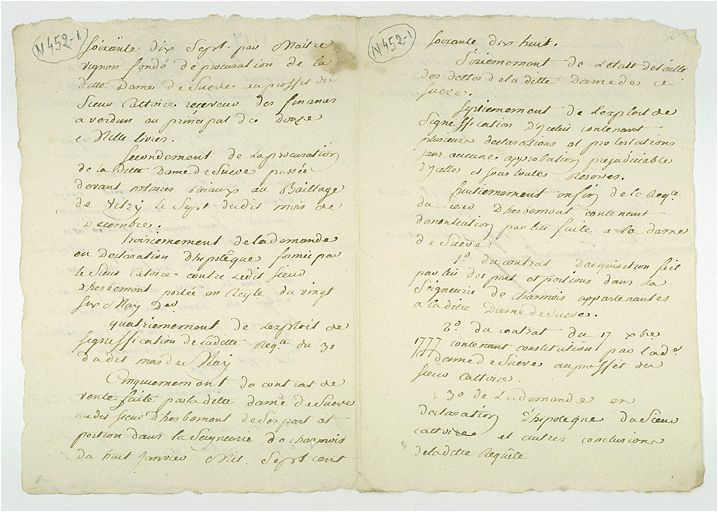 N 452-1
soixante dix Sept. par Maitre
vignon fondé de procuration de la
ditte Dame de Sueve au proffit du
Sieur Cattoire receveur des finances
a verdun au principal de douze
Mille livres.
Secondement de la procuration
de la ditte Dame de Sueve passée
devant notaires Roïaux au Bailliage
de Vitry le Sept dudit mois de
Decembre.
Troisiemement de la demande
en declaration d'hipotêque formée par
le Sieur Cattoire contre ledit Sieur
d'herbemont portée en Reqte du vingt
six May Der
quatriemement de l'exploit de
signiffication de ladette Reqte du 30
dudit mois de May
Cinquiemement du contrat de
vente faite par la ditte dame de Sueve
audit sieur d'herbemont de Ses part et
portion dans la Seigneurie de charmois
du huit Janvier Mil Sept cent
N 452-1
soixante dix huit.
Sixiemement de l'etat detaillé
des dettes de la ditte Dame de
Sueve.
Septiemement de l'exploit de
signiffication d'iceluy contenant
plusieurs declarations et protestations
sans aucune approbation prejudiciable
d'icelles et sous toutes Reserves.
huitiemement enfin de la Reqte
du sieur d'herbemont contenant
denonciation par luy faite a la dame
de Sueve.
1o du contrat d'acquisition fait
par luy des part et portions dans la
Seigneurie de charmois appartenantes
a la ditte Dame de Sueve.
2o du contrat du 17 xbre
1777 contenant constitution par lade
dame de Sueve au proffit du
sieur Cattoire.
3o de la demande en
declaration d'hipotêque du Sieur
Cattoire et autres conclusions
de la ditte Requête